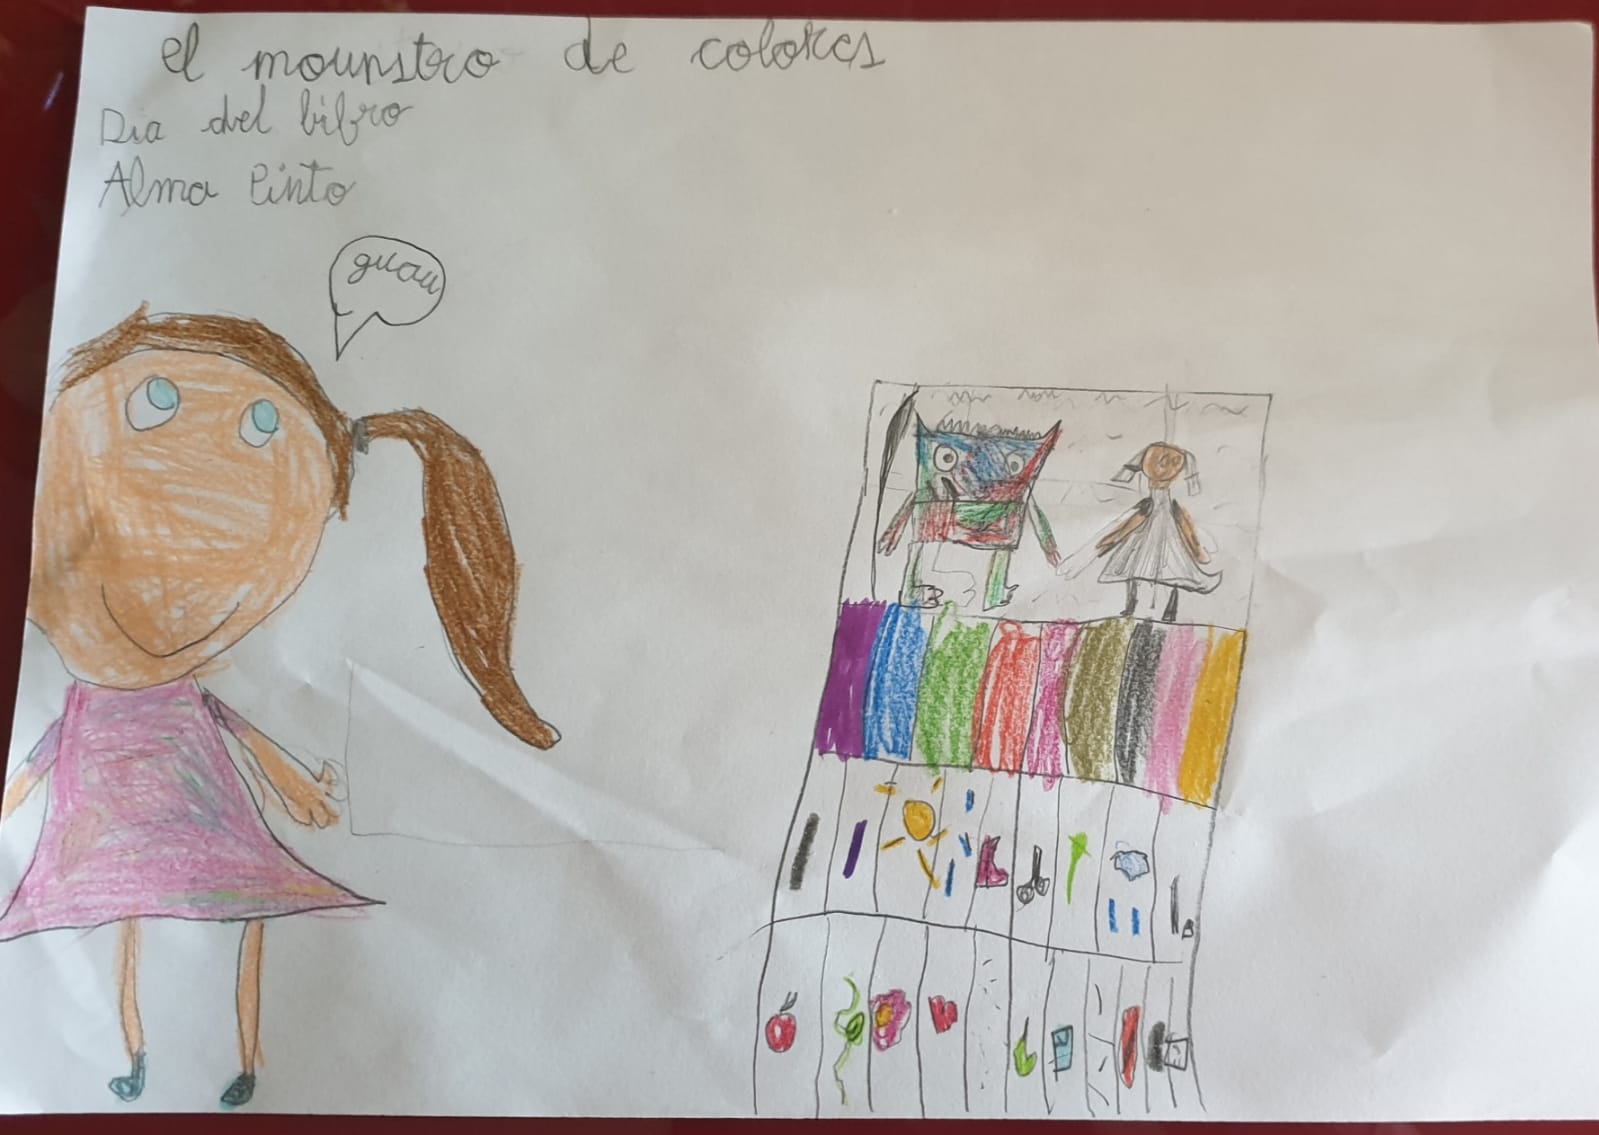 el mounstro de colores
Dia del bibro
Alma Pinto
guau